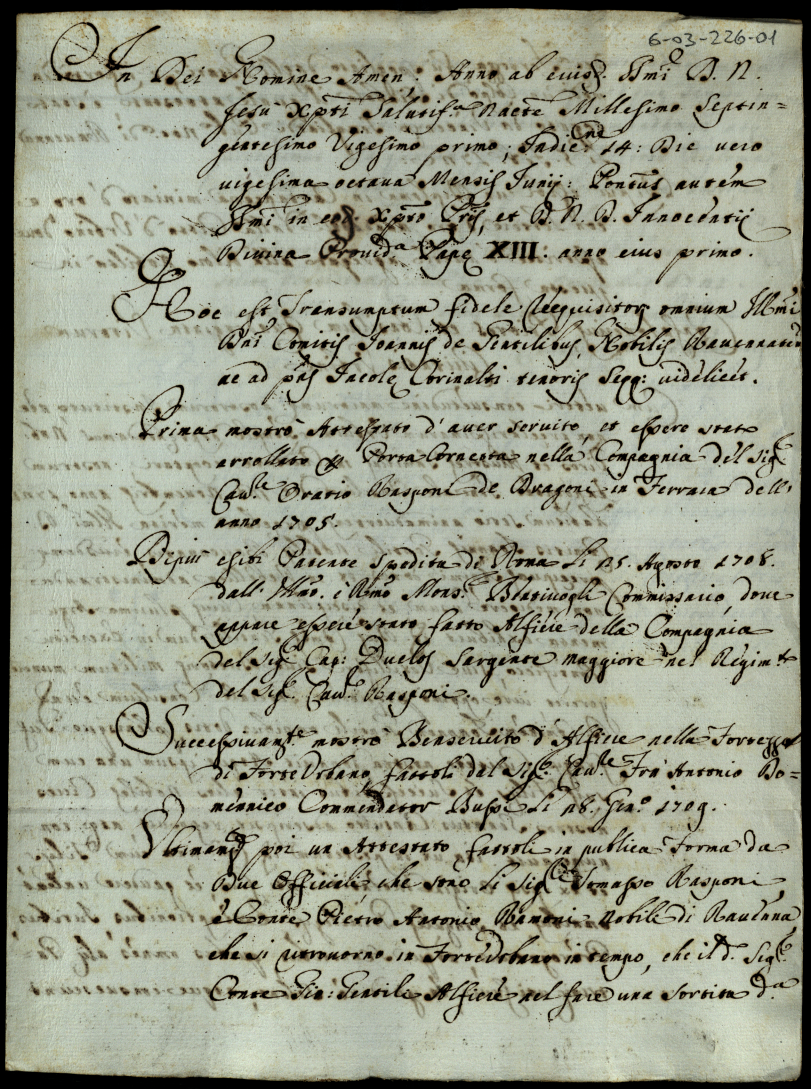 6-03-226-01
In Dei Nomine Amen: Anno ab eiusd. Dmi D. N.
Jesu Xpti Salutif. Natte Millesimo Septin=
gentesimo Vigesimo primo, Indicne 14: Die vero
vigesima octava Mensis Junij: Pontus autem
Smi in eod. Xpto Pris, et D. N. D. Innocentij
Divina Provida Pape XIII: anno eius primo.
Hoc est Transumptum fidele Requisitor omnium Illmi
Dni Comitis Joannis de Gentilibus, Nobilis Ravennaten
ac ad pns Incole Corinalti tenoris Seqq: videlicet.
Prima mostrò Attestato d'aver servito, et essere stato
arrollato p Porta Cornetta nella Compagnia del Sigr
Cavle Oratio Rasponi de Dragoni in Ferrara dell'
anno 1705.
Depiù esibì Patente spedita di Roma li 25. Agosto 1708.
dall' Illmo. e Rmo Mons. Bentivogli Commissario, dove
appare essere stato fatto Alfiere della Compagnia
del Sigr Cap: Duclos Sargente maggiore nel Regimto
del Sigr Cavle Rasponi.
Successivamte mostrò Benservito d'Alfiere nella Fortezza
di Forte Urbano, fattoli dal Sigr Cavle Frà Antonio Do=
mennico Commendator Bussi li 28. Geno 1709.
Ultimamte poi un Attestato fattole in publica forma da
Due Officiali che sono li Sigri Tomasso Rasponi,
e Conte Pietro Antonio Ramoni nobile di Ravenna
che si ritrovorno in Forte Urbano in tempo, che il d. Sigr
Conte Gio: Gentile Alfiere nel fare una sortita da